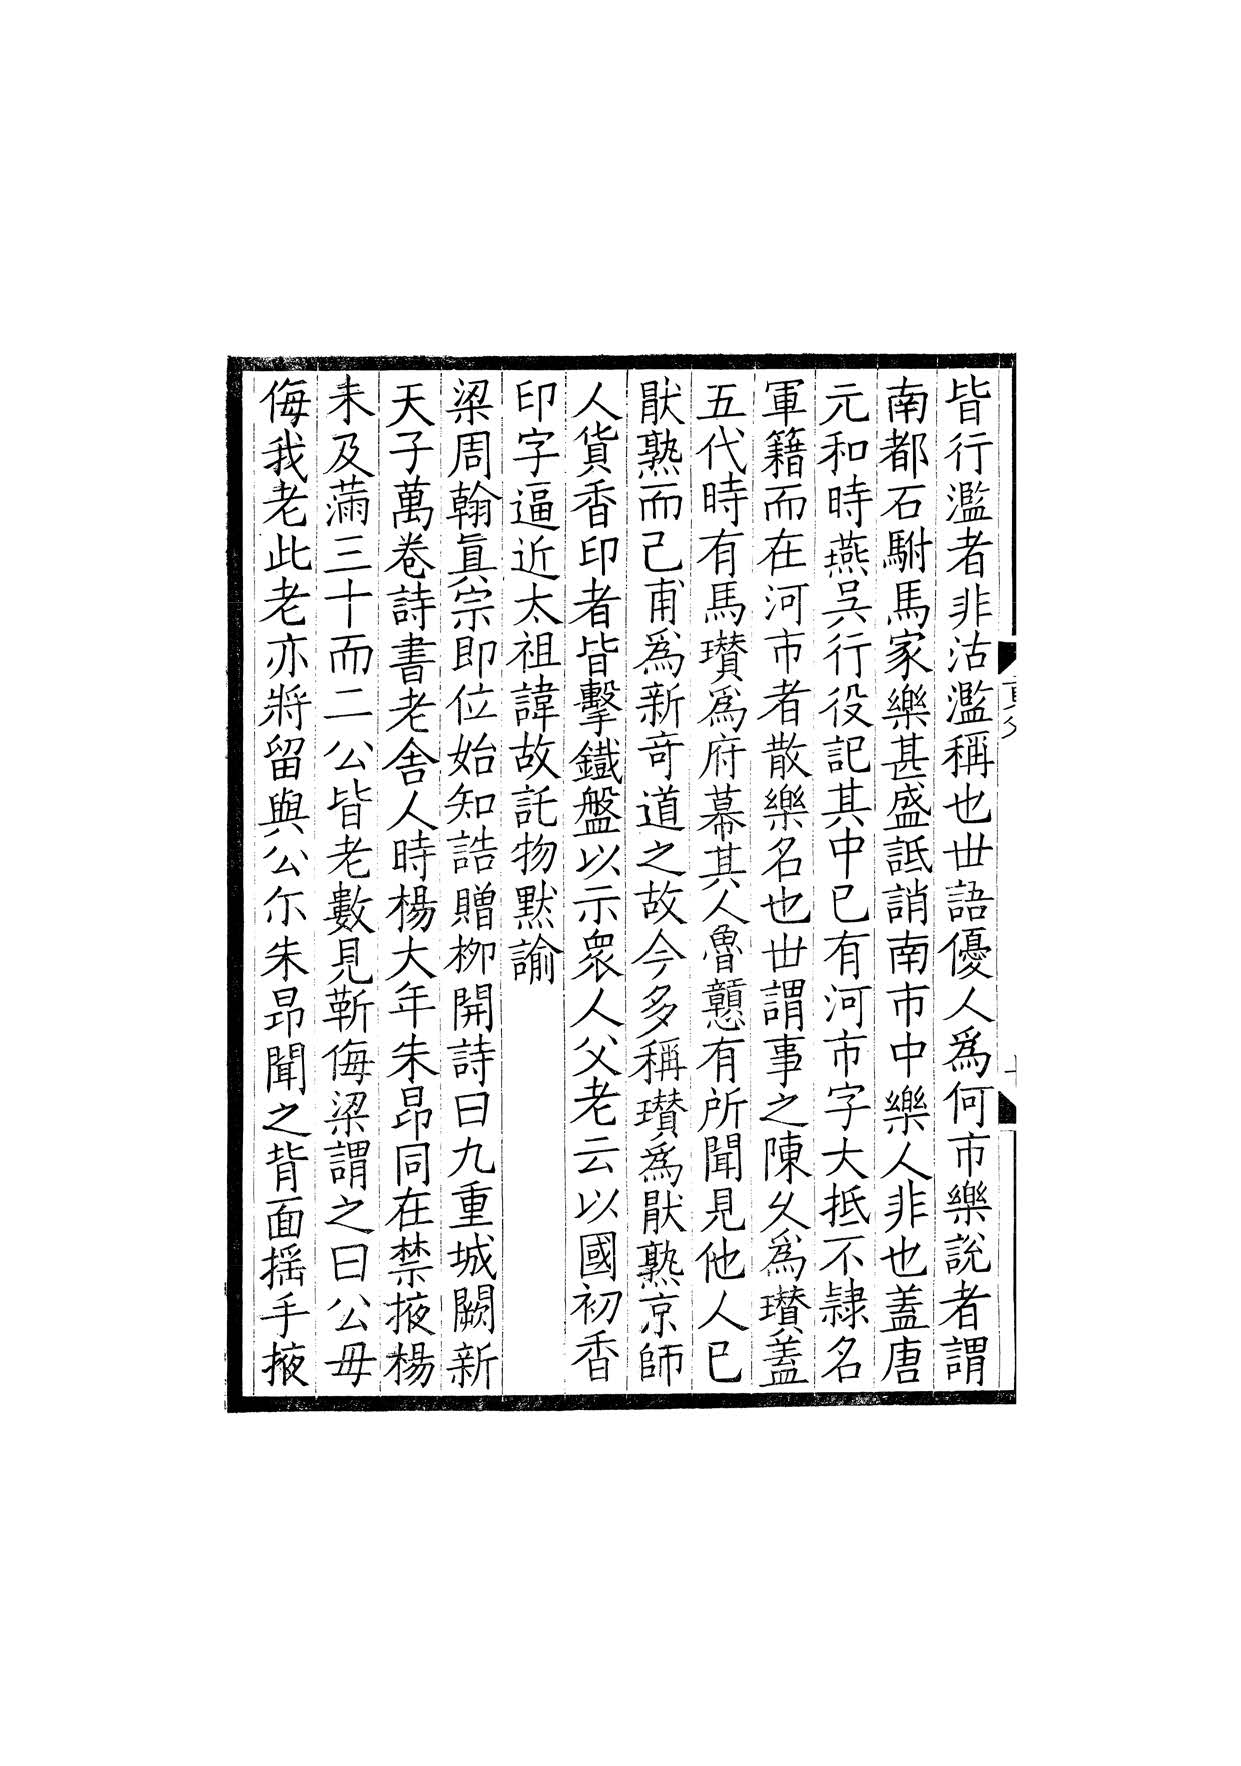 皆行濫者非沽濫稱也丗語優人爲何市樂說者謂
南都石駙馬家樂甚盛詆誚南市中樂人非也盖唐
元和時燕吳行役記其中已有河市字大抵不隷名
軍籍而在河市者散樂名也丗謂事之陳乆爲瓚盖
五代時有馬瓚爲府幕其人魯戇有所聞見他人已
猒熟而己甫爲新竒道之故今多稱瓚爲猒熟京師
人貨香印者皆擊鐵盤以示衆人父老云以國初香
印字逼近太祖諱故託物默諭
梁周翰眞宗即位始知誥贈栁開詩曰九重城闕新
天子萬卷詩書老舍人時楊大年朱昂同在禁掖楊
耒及滿三十而二公皆老數見靳侮梁謂之曰公毋
侮我老此老亦將留與公尓朱昂聞之背面揺手掖